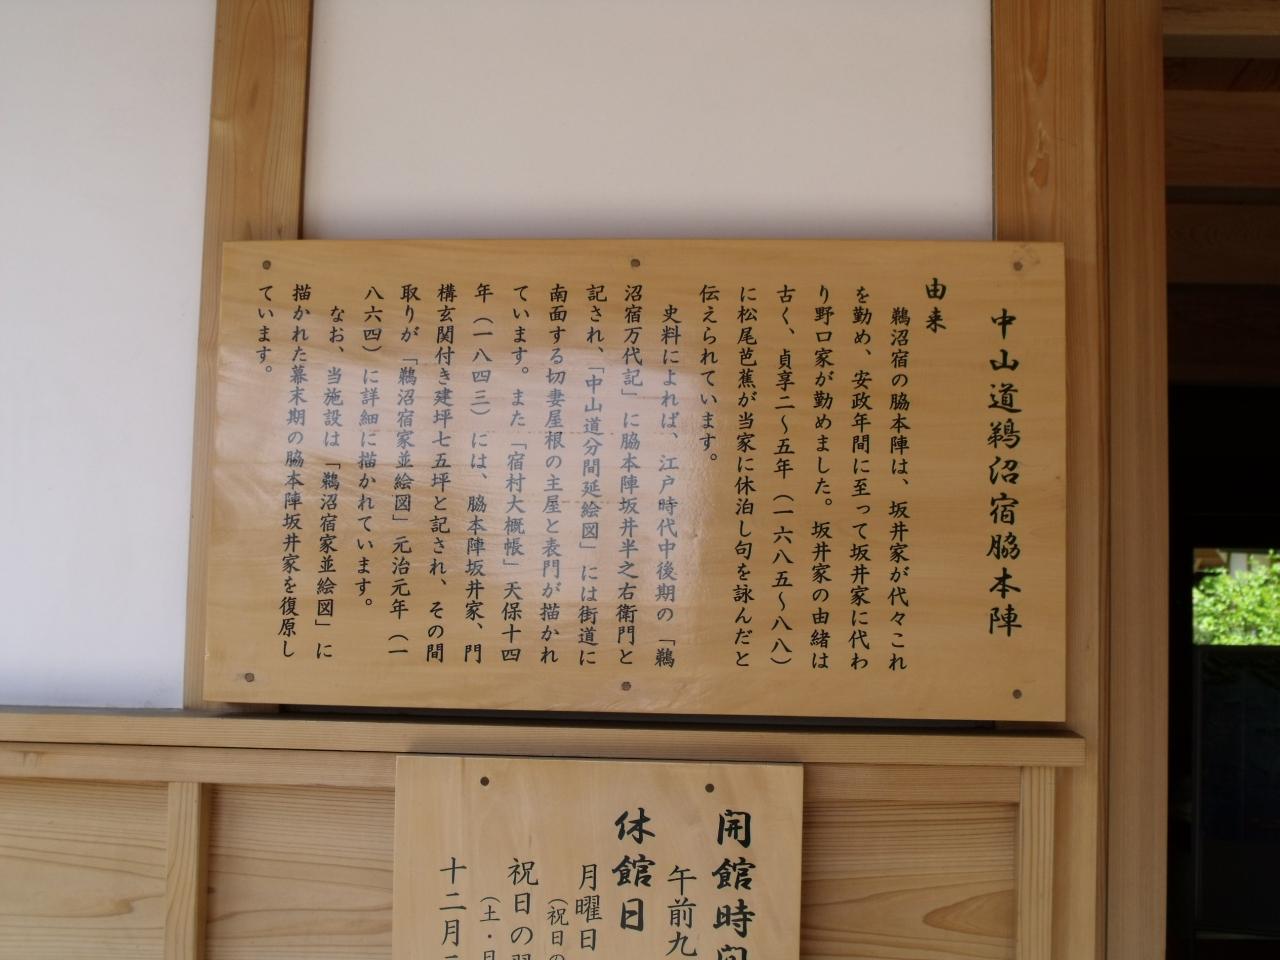 中山道鵜沼宿脇本陣
由来
鵜沼宿の脇本陣は、坂井家が代々これ
を勤め、安政年間に至って坂井家に代わ
り野口家が勤めました。坂井家の由緒は
古く、貞享二〜五年（一六八五〜八八）
に松尾芭蕉が当家に休泊し句を詠んだと
伝えられています。
史料によれば、江戸時代中後期の「鵜
沼宿万代記」に脇本陣坂井半之右衛門と
記され、「中山道分間延絵図」には街道に
南面する切妻屋根の主屋と表門が描かれ
ています。また「宿村大概帳」天保十四
年（一八四三）には、脇本陣坂井家、門
構玄関付き建坪七五坪と記され、その間
取りが「鵜沼宿家並絵図」元治元年（一
八六四）に詳細に描かれています。
なお、当施設は「鵜沼宿家並絵図」に
描かれた幕末期の脇本陣坂井家を復原し
ています。
開館時間
午前九
休館日
月曜日
（祝日の
祝日の翌
（土・日
十二月二